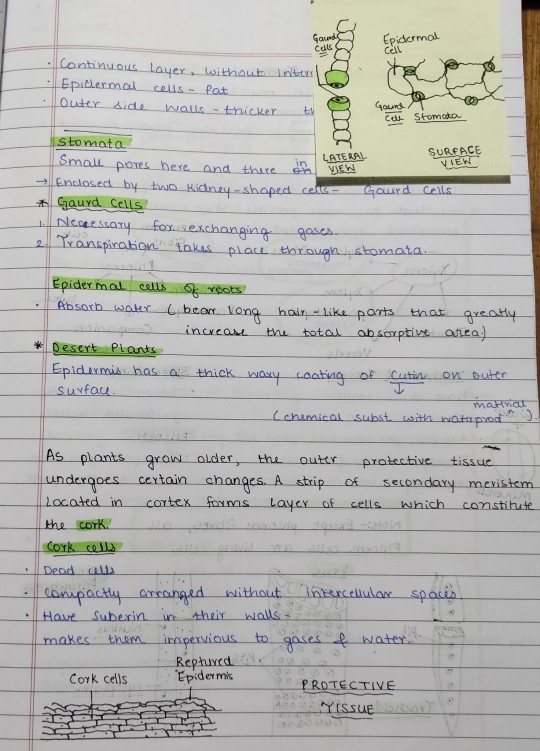 · Continuous Layer, without Inter
· Epidermal cells - flat
· Outer side walls - thicker th
Stomata
Small pores here and there in
→ Enclosed by two kidney-shaped cells - Gaurd Cells
* Gaurd Cells
1. Necessary for exchanging gases.
2. Transpiration takes place through stomata.
Epidermal cells of roots
· Absorb water (bear long hair-like parts that greatly
increase the total absorptive area)
* Desert Plants
Epidermis has a thick waxy coating of Cutin on outer
surface.
(chemical subst with waterproof material).
As plants grow older, the outer protective tissue
undergoes certain changes. A strip of secondary meristem
Located in cortex forms Layer of cells which constitute
the cork.
Cork cells
· Dead cells
· Compactly arranged without Intercellular spaces
· Have Suberin in their walls -
makes them impervious to gases & water.
Cork cells
Reptured
Epidermis
PROTECTIVE
TISSUE
Gaurd
Cells
LATERAL
VIEW
Epidermal
Cell
Gaurd
Cell
Stomata
SURFACE
VIEW